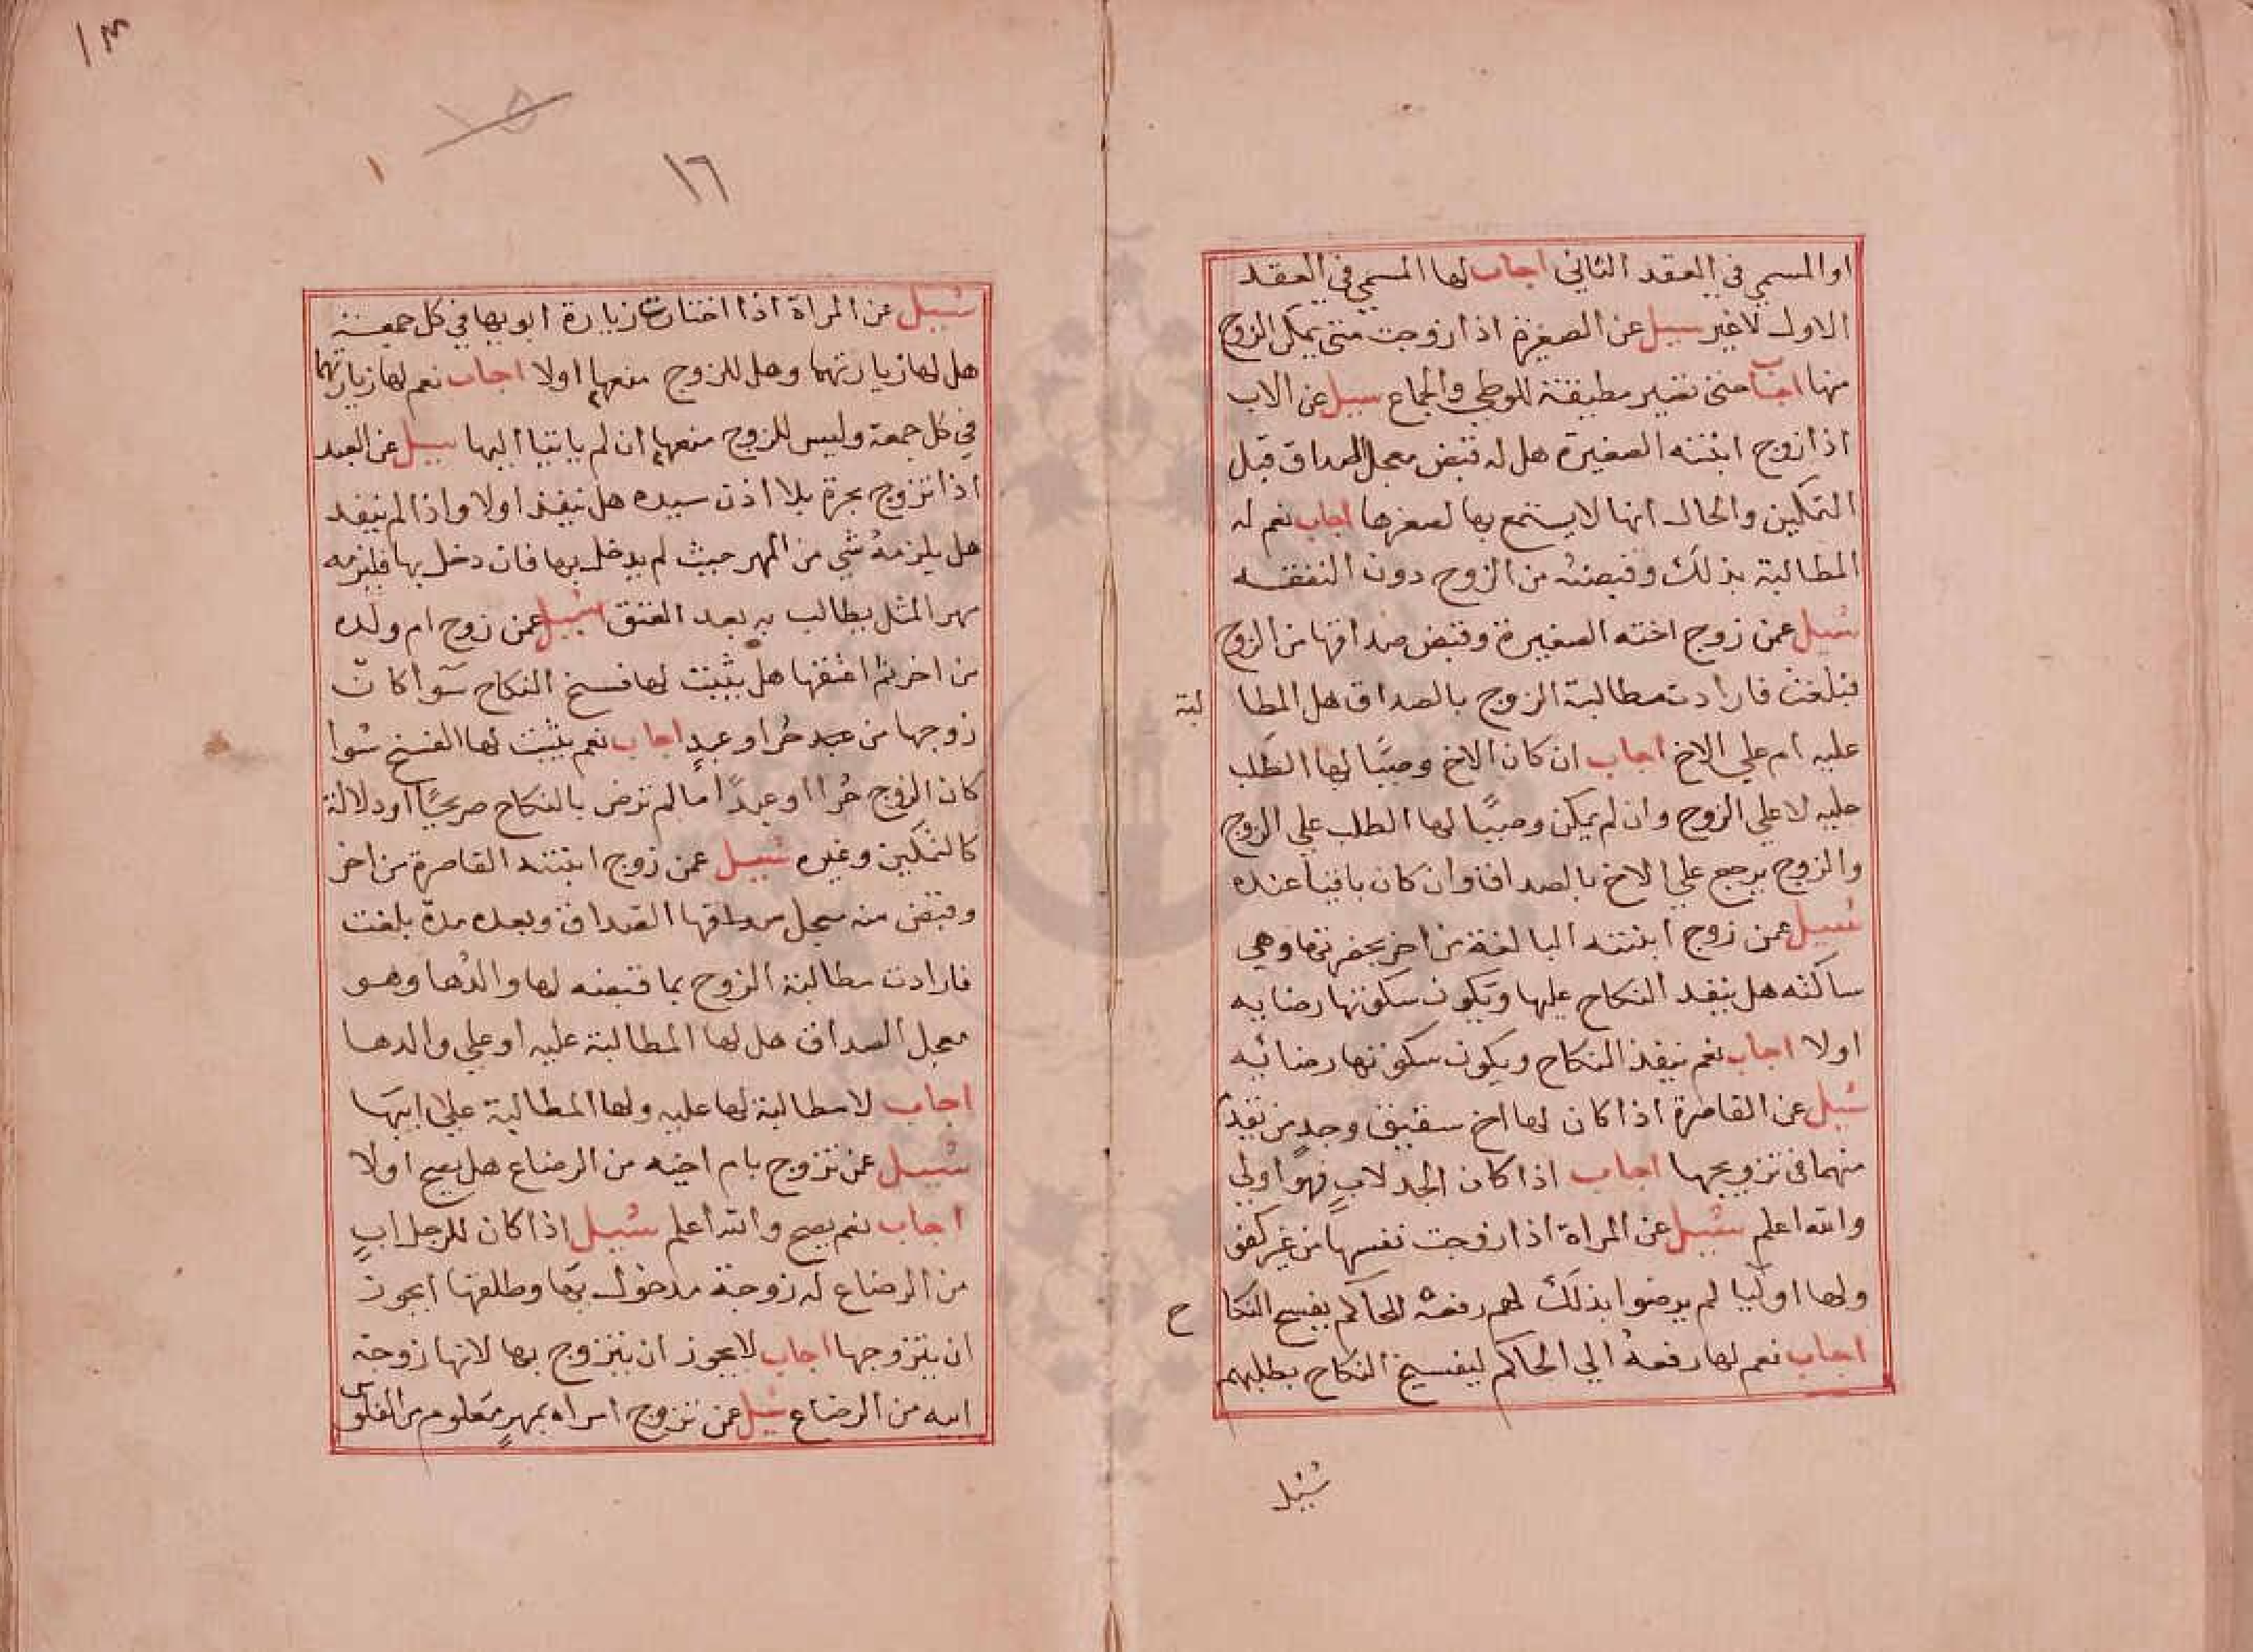 او المسمي في العقد الثاني اجاب لها المسمي في العقد
الاول لا غير سيل عن الصغيرة اذا زوجت متى يمكن الزوج
منها اجاب متى تصير مطيقة للوطي والجماع سيل عن الاب
اذا زوج ابنته الصغيرة هل له قبض معجل الصداق قبل
التمكين والحال انها لا يستمتع بها لصغرها اجاب نعم له
المطالبة بذلك وقبضته من الزوج دون النفقه
سيل عمن زوج اخته الصغيرة وقبض صداقها من الزوج
فبلغت فارادت مطالبة الزوج بالصداق هل المطا
لبة
عليه ام علي الاخ اجاب ان كان الاخ وصيًا لها الطلب
عليه لا علي الزوج وان لم يكن وصيًا لها الطلب علي الزوج
والزوج يرجع علي الاخ بالصداق وان كان باقيا عنده
سيل عمن زوج ابنته البالغة من اخر بحضرتها وهي
ساكته هل ينفد النكاح عليها ويكون سكوتها رضا به
اولا اجاب نعم ينفذ النكاح ويكون سكوتها رضائه
سيل عن القاصرة اذا كان لها اخ سقيق وجد من يقدم
منهما في تزويجها اجاب اذا كان الجد لاب فهو اولي
والله اعلم سيل عن المراة اذا زوجت نفسها من غير كفو
ولها اوليا لم يرضوا بذلك لهم رفعه للحاكم بفسخ النكا
ح
اجاب نعم لها رفعه الي الحاكم ليفسخ النكاح بطلبهم
سيل
١٣
١٥
١
١٦
سيل عن المراة اذا اختارت زيارة ابويها في كل جمعة
هل لها زيارتهما وهل للزوج منعها اولا اجاب نعم لها زيارتهما
في كل جمعة وليس للزوج منعها ان لم ياتيا اليها سيل عن العبد
اذا تزوج بحرة بلا اذن سيده هل ينفذ اولا واذا لم ينفد
هل يلزمه شي من المهر حيث لم يدخل بها فان دخل بها فيلزمه
مهر المثل يطالب به بعد العتق سيل عمن زوج ام ولده
من اخر ثم اعتقها هل يثبت لها فسخ النكاح سوا كان
زوجها من عبد حُرا او عبدٍ اجاب نعم يثبت لها الفسخ سوا
كان الزوج حُرا او عبدًا ما لم ترض بالنكاح صريحًا او دلالة
كالتمكين وغيره سيل عمن زوج ابنته القاصرة من اخر
وقبض منه معجل صداقها الصداق وبعده مدة بلغت
فارادت مطالبة الزوج بما قبضه لها والدها وهو
معجل الصداق هل لها المطالبة عليه او علي والدها
اجاب لا مطالبة لها عليه ولها المطالبة علي ابيها
سيل عن تزوج بام اخيه من الرضاع هل يصح اولا
اجاب نعم يصح والله اعلم سيل اذا كان للرجل ابٍ
من الرضاع له زوجة مدخول بها وطلقها ايجوز
ان يتزوجها اجاب لا يجوز ان يتزوج بها لانها زوجة
ابيه من الرضاع سيل عمن تزوج امراه بمهرٍ معلوم من الفلوس